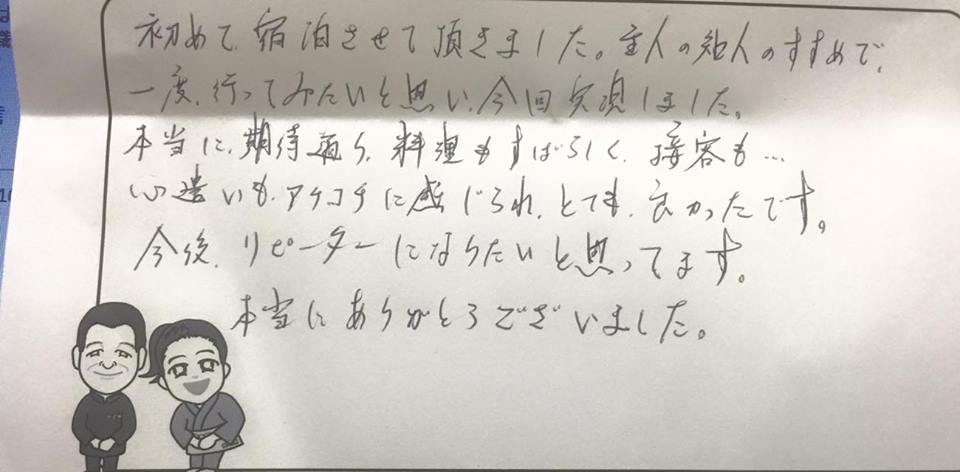 初めて、宿泊させて頂きました。主人の知人のすすめで、
一度、行ってみたいと思い、今回実現しました。
本当に、期待通り、料理もすばらしく、接客も…
心遣いも、アチコチに感じられ、とても、良かったです。
今後、リピーターになりたいと思ってます。
本当にありがとうございました。